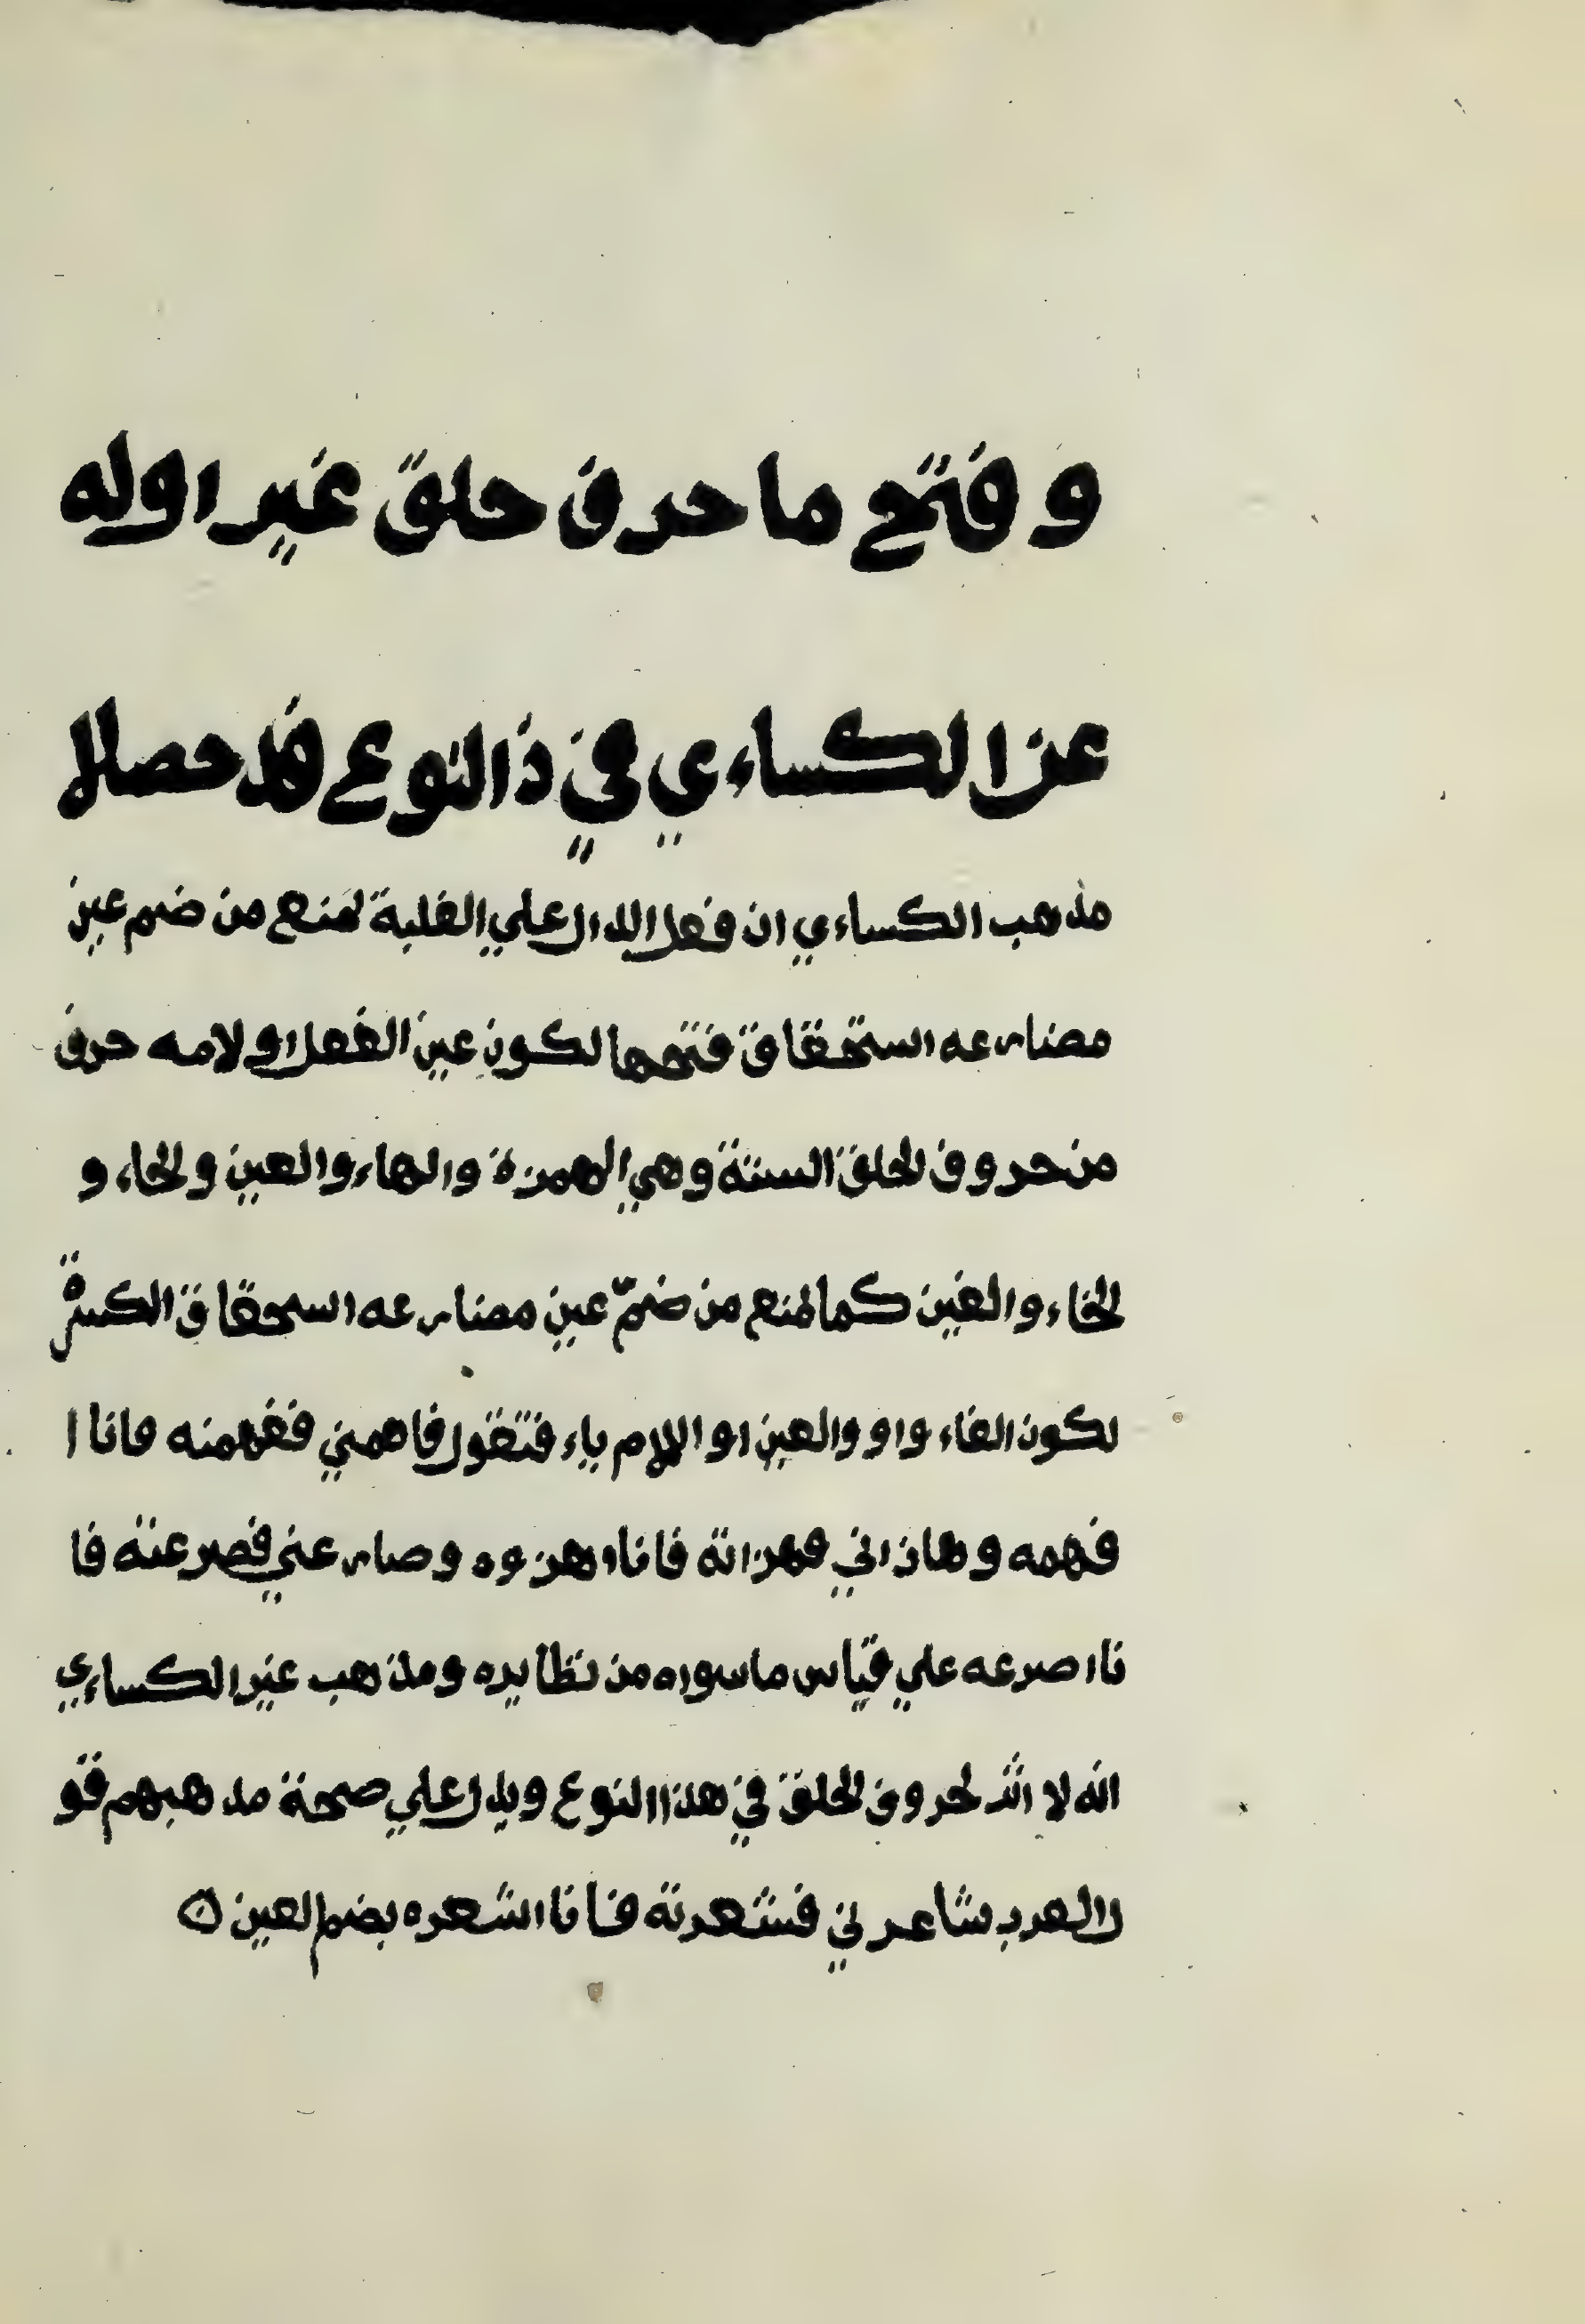 و فتح ما حرف حلق غير اوله
عن الكساءي في ذا النوع قد حصلا
مذهب الكساءي ان فعل الدال علي الغلبة لمنع من ضم عين
مضارعه استحقاق فتحها لكون عين الفعل او لامه حرف
من حروف الحلق الستة وهي الهمزة والهاء والعين والحاء و
الخاء والغين كما لمنع من ضمّ عين مضارعه استحقاق الكسرة
لكون الفاء واو والعين او اللام ياء فتقول فاهمني ففهمته فانا ا
فهمه وهازاني فهزاته فانا اهزوه وصارعني فصرعته فا
نا اصرعه علي قياس ما سواه من نظايره ومذهب غير الكساءي
انه لا اثر لحروف الحلق في هذا النوع ويدل علي صحة مذهبهم قو
ل العرب شاعرني فشعرته فانا اشعره بضم العين